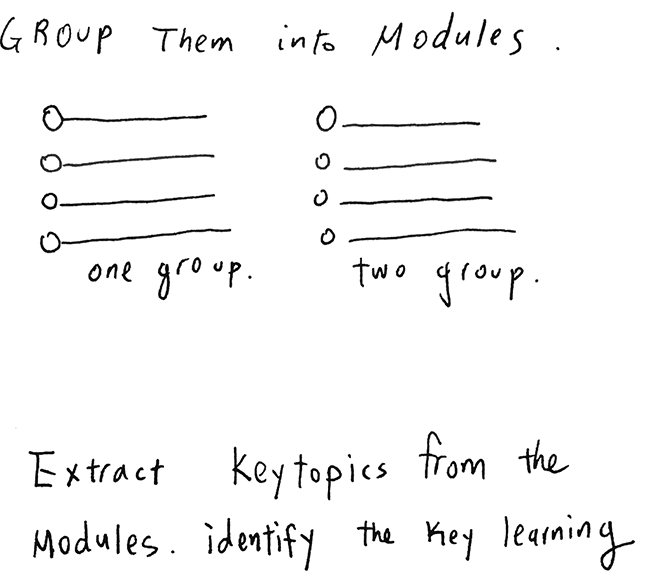 GROUP Them into Modules.
one group. two group.
Extract Keytopics from the
Modules. identify the Key learning